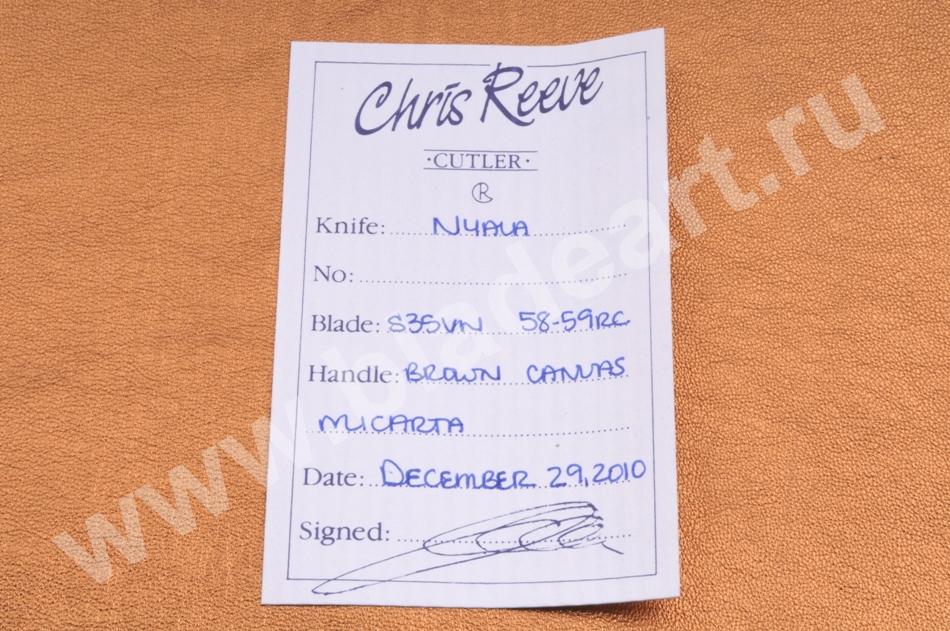 Chris Reeve
·CUTLER·
R
Knife: NYALA
No:
Blade: S35VN 58-59RC
Handle: BROWN CANVAS
MICARTA
Date: DECEMBER 29, 2010
Signed:
www.bladeart.ru